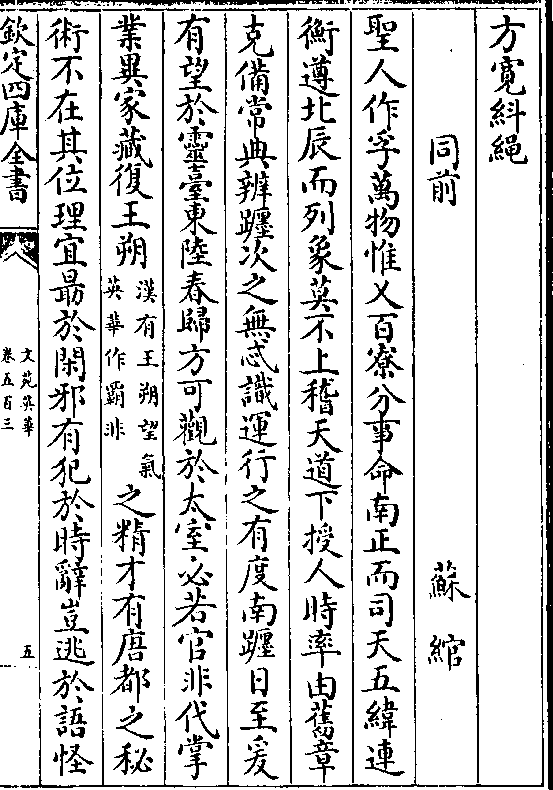 方寛糾繩
同前　蘇綰
聖人作孚萬物惟乂百寮分事命南正而司天五緯連
衡遵北辰而列象莫不上稽天道下授人時率由舊章
克備常典辨躔次之無忒識運行之有度南躔日至爰
有望於靈臺東陸春歸方可觀於太室必若官非代掌
業異家藏復王朔漢有王朔望氣英華作霸非之精才有唐都之秘
術不在其位理宜最於閑邪有犯於時辭豈逃於語怪
欽定四庫全書
文苑英華
卷五百三
五